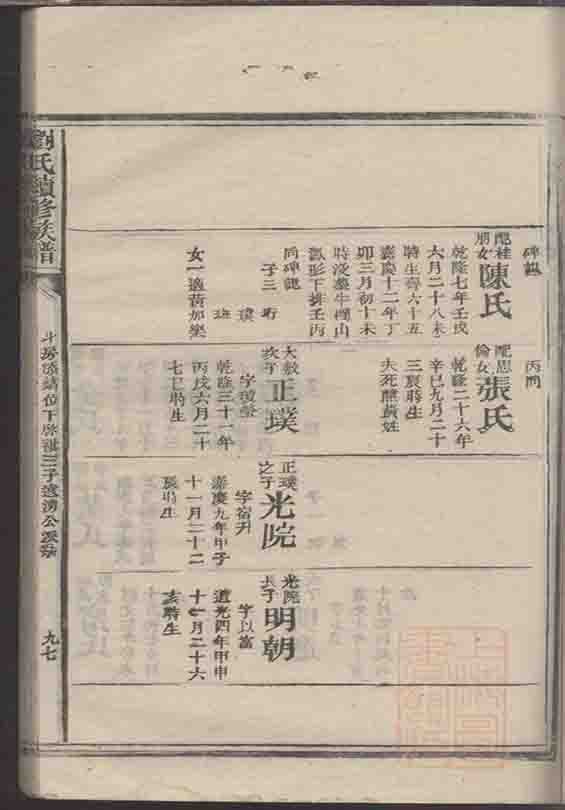 碑誌
配桂
朋女
陳氏
乾隆七年壬戌
六月二十八未
時生壽六十五
嘉慶十二年丁
卯三月初十未
時沒葬牛欄山
瓢形下排壬丙
向碑誌
子三 珩
璞
女一適黃
丙向
配思
倫女
張氏
乾隆二十六年
辛巳九月二十
三辰時生
夫死醮黃姓
大毅
次子
正璞
乾隆三十一年
丙戌六月二十
七巳時生
正璞
之子
光院
字宿升
嘉慶九年甲子
十一月二十二
辰時生
光院
長子
明朝
字以富
道光四年甲申
十一月二十六
亥時生
劉氏續修族譜
九七